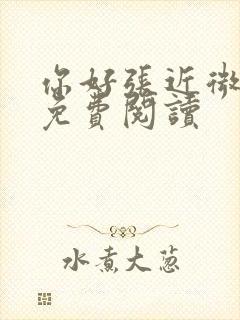 你好張近微
免費閱讀
水煮大蔥